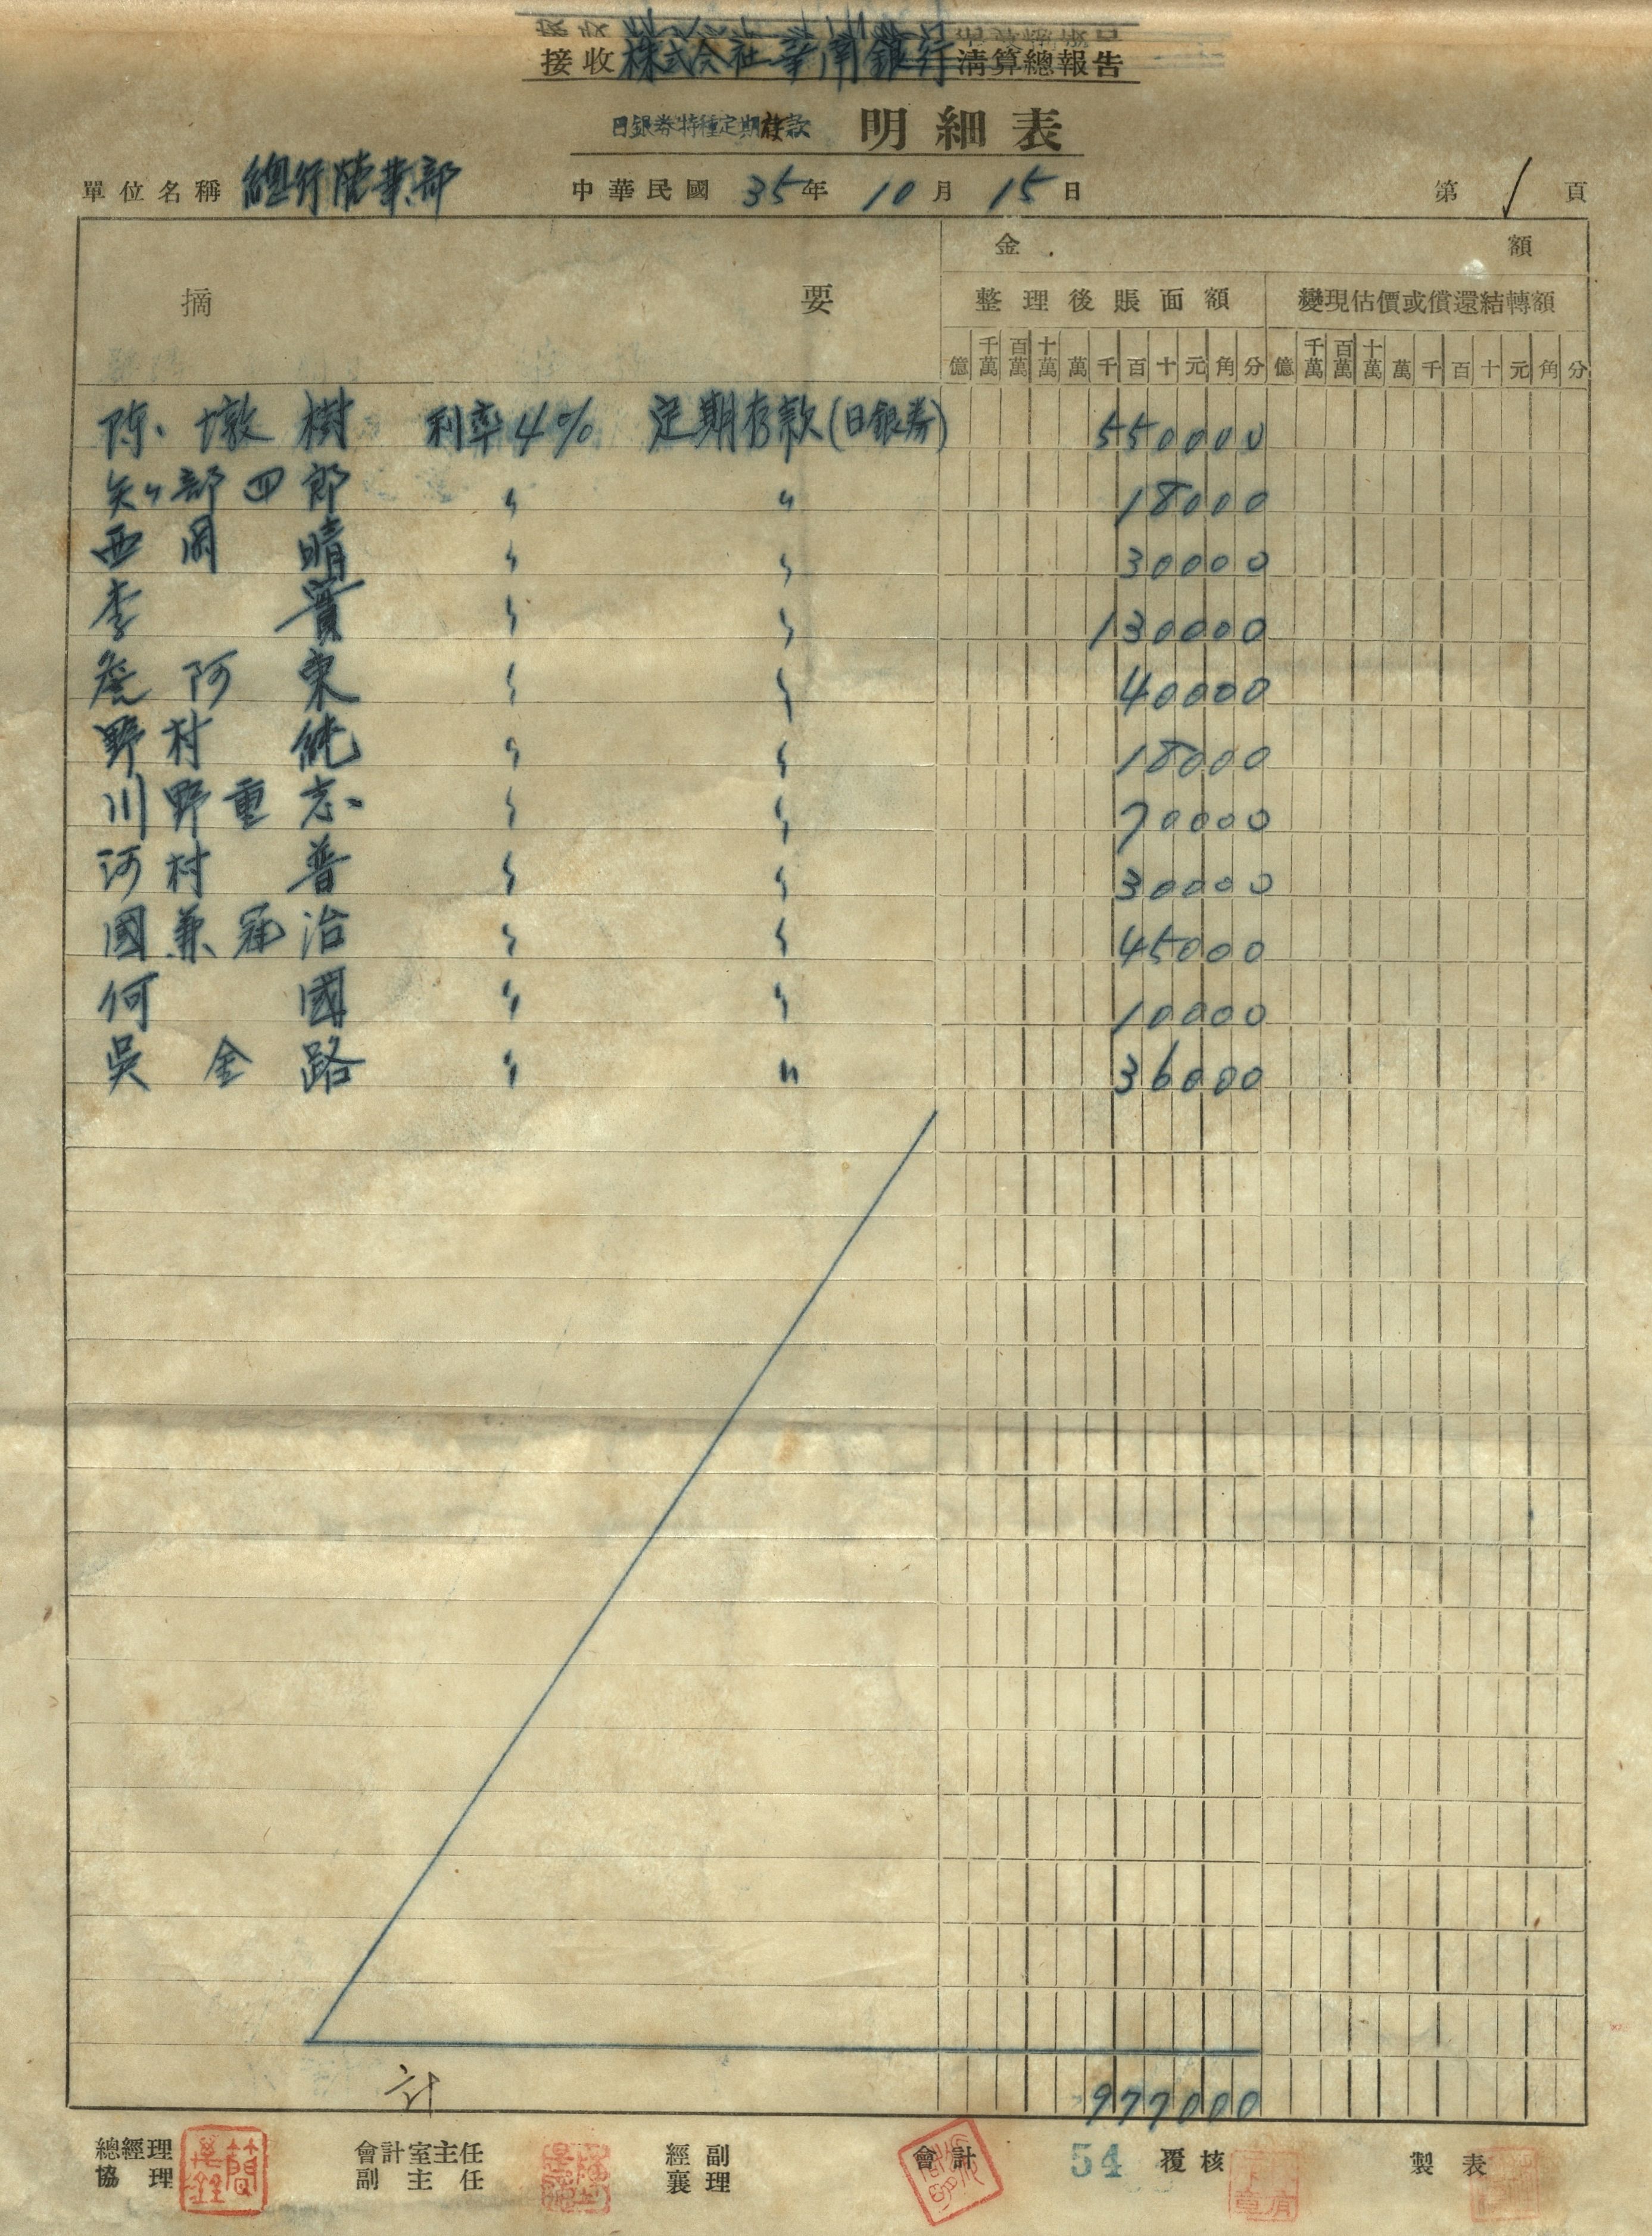 接收株式会社華南銀行清算總報告
日銀券特種定期存款 明細表
單位名稱 總行營業部 中華民國 35年 10月 15日 第 1 頁
摘要 金額
整理後賬面額 變現估價或償還結轉額
億 千萬 百萬 十萬 萬 千 百 十 元 角 分 億 千萬 百萬 十萬 萬 千 百 十 元 角 分
陈墩樹 利率4% 定期存款(日銀券) 550000
矢部四郎 〃 〃 18000
西岡晴 〃 〃 30000
李寶 〃 〃 130000
詹阿東 〃 〃 40000
野村純 〃 〃 18000
川野重志 〃 〃 70000
河村普 〃 〃 30000
國兼冠治 〃 〃 45000
何國 〃 〃 10000
吳金路 〃 〃 36000
計 977000
總經理 會計室主任 經副 會計 54 覆核 製表
協理 副主任 襄理